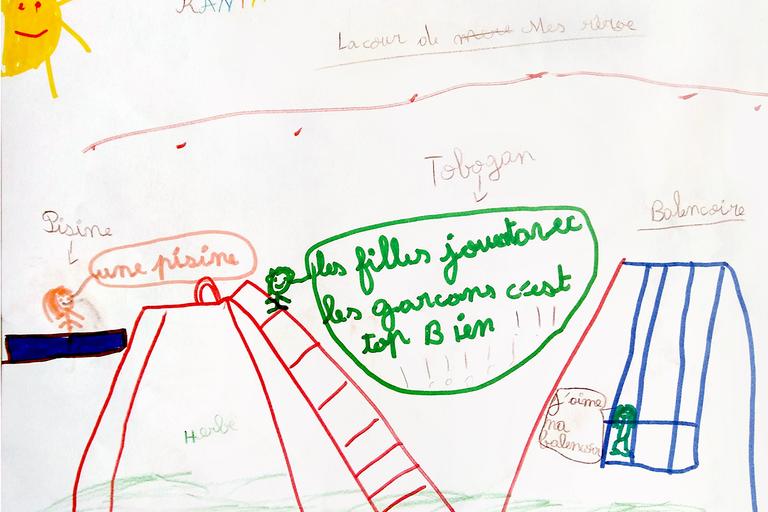 La cour de mes Mes rêroe
Tobogan
Pisine
Balencoire
une pisine
les filles jouent avec
les garcons c'est
top Bien !!!!
!!!!
j'aime
ma
balencoir
Herbe